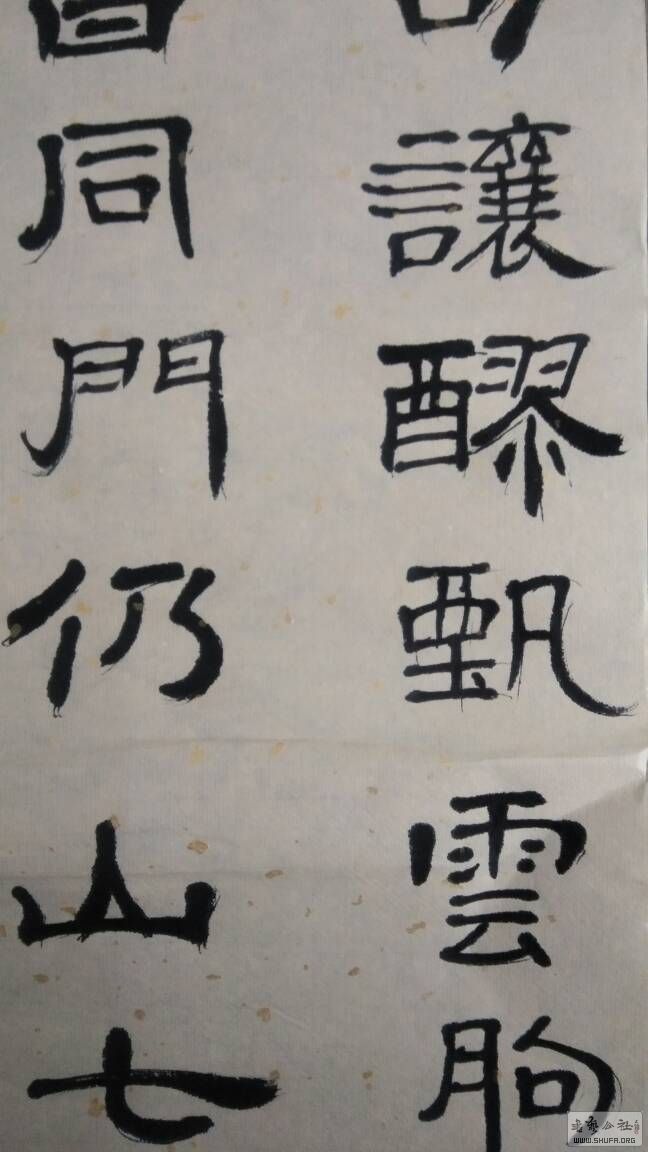 讓醪甄雲朐
同門仍山七
书艺公社
WWW.SHUFA.ORG